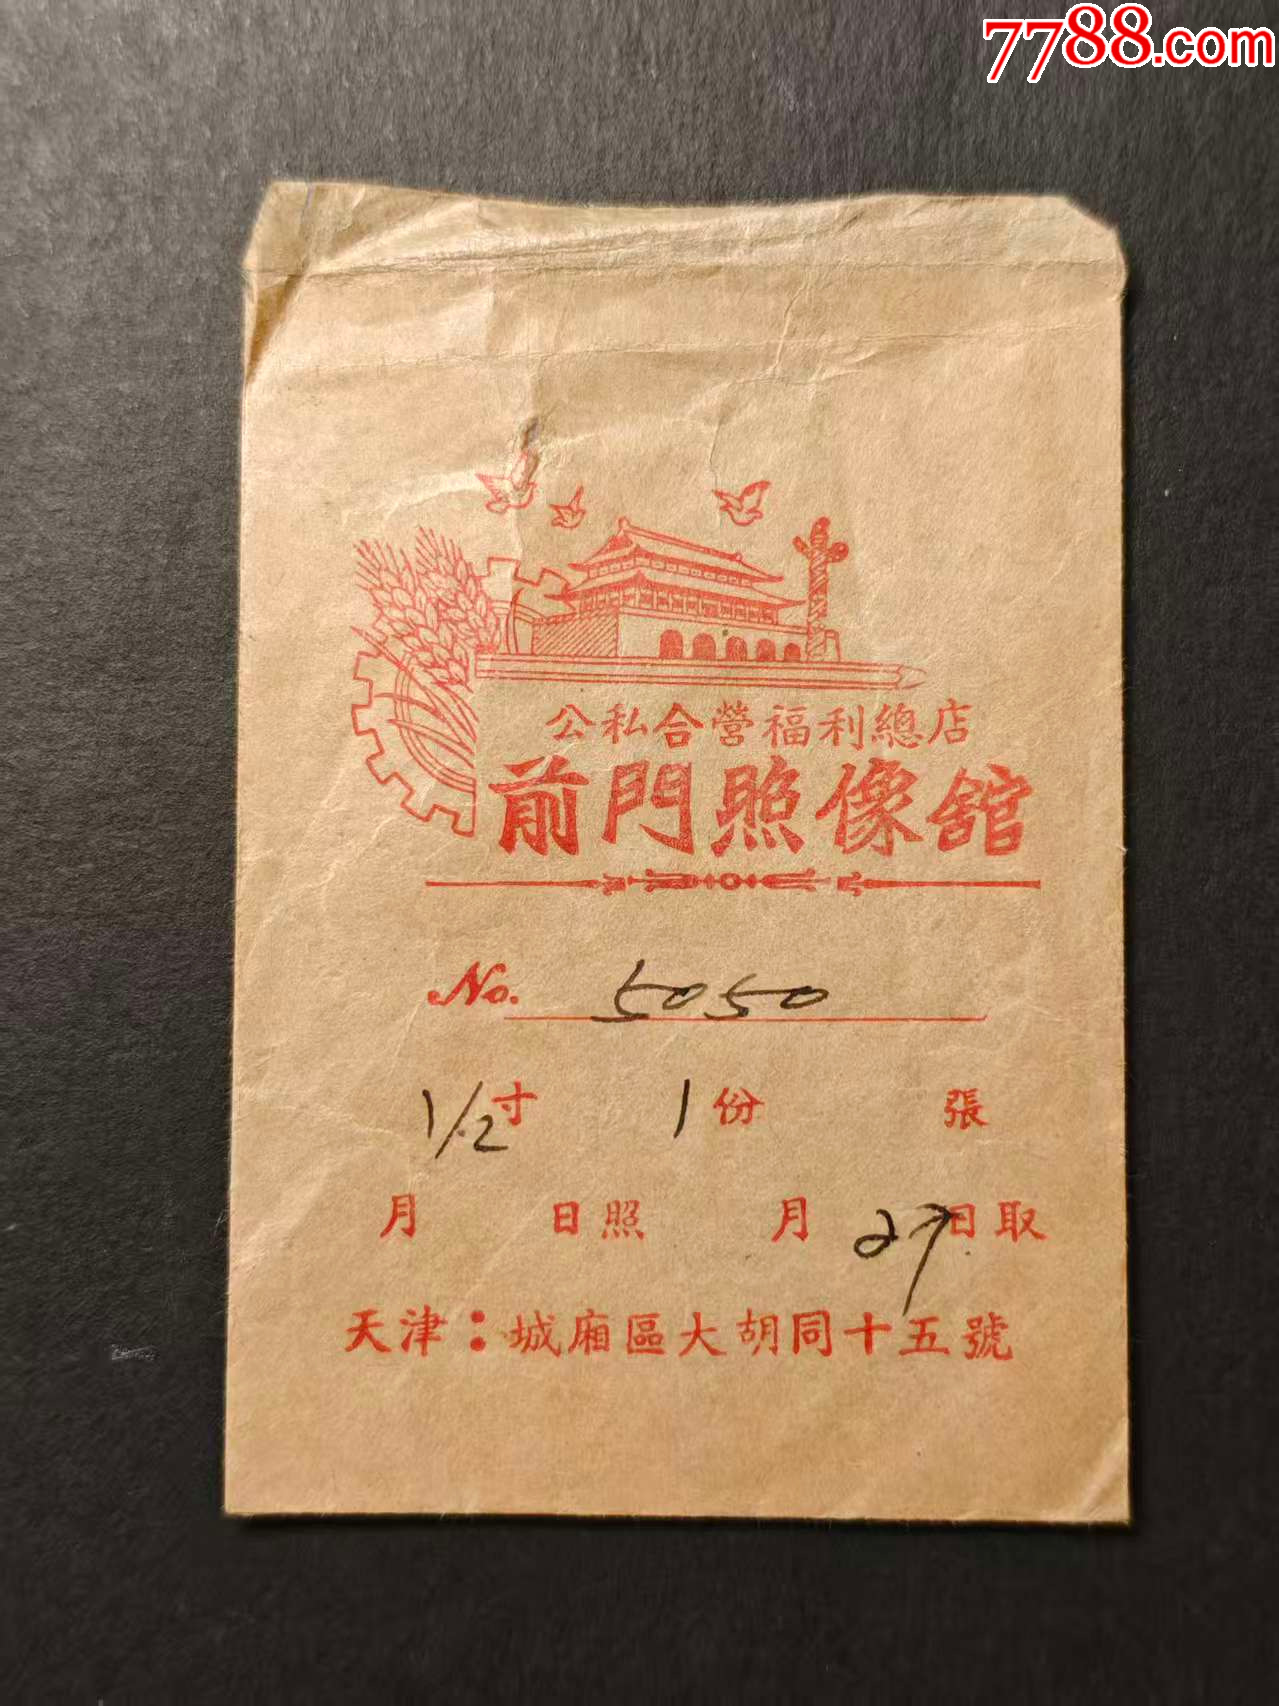 7788.com
公私合營福利總店
前門照像舘
No. 5050
1/2寸 1份 張
月 日照 月27日取
天津：城廂區大胡同十五號